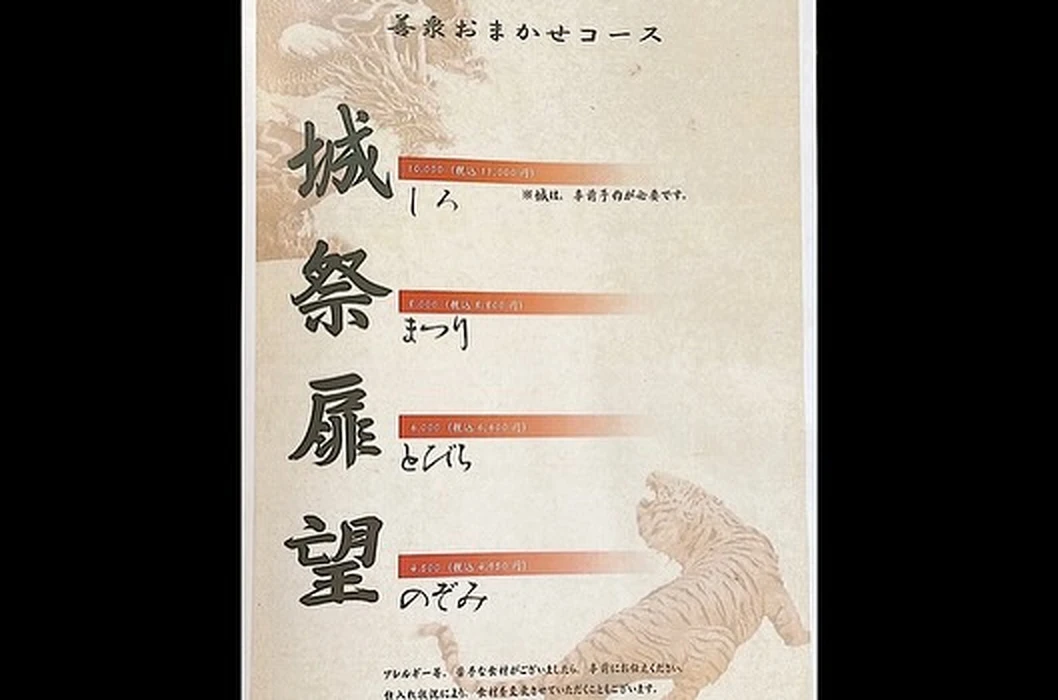 善衆おまかせコース
城
10,000 (税込 11,000 円)
しろ
※城は、事前予約が必要です。
祭
8,000 (税込 8,800 円)
まつり
扉
6,000 (税込 6,600 円)
とびら
望
4,500 (税込 4,950 円)
のぞみ
アレルギー等、苦手な食材がございましたら、事前にお伝えください。
仕入れ状況により、食材を変更させていただくこともございます。